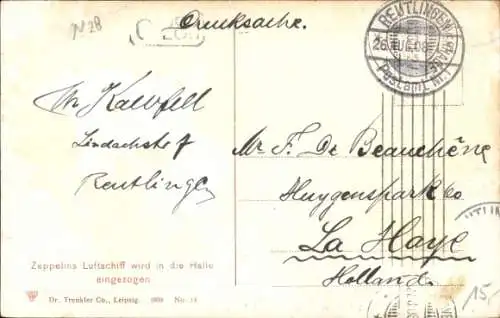 No 28
Drucksache.
REUTLINGEN
Postamt No 1
Kalbfell
Lindachstr 7
Reutlingen
Mr F. De Beauchêne
Huygenspark 60
La Haye
Holland.
Zeppelins Luftschiff wird in die Halle
eingezogen
Dr. Trenkler Co., Leipzig. 1908 No. 14
15,-